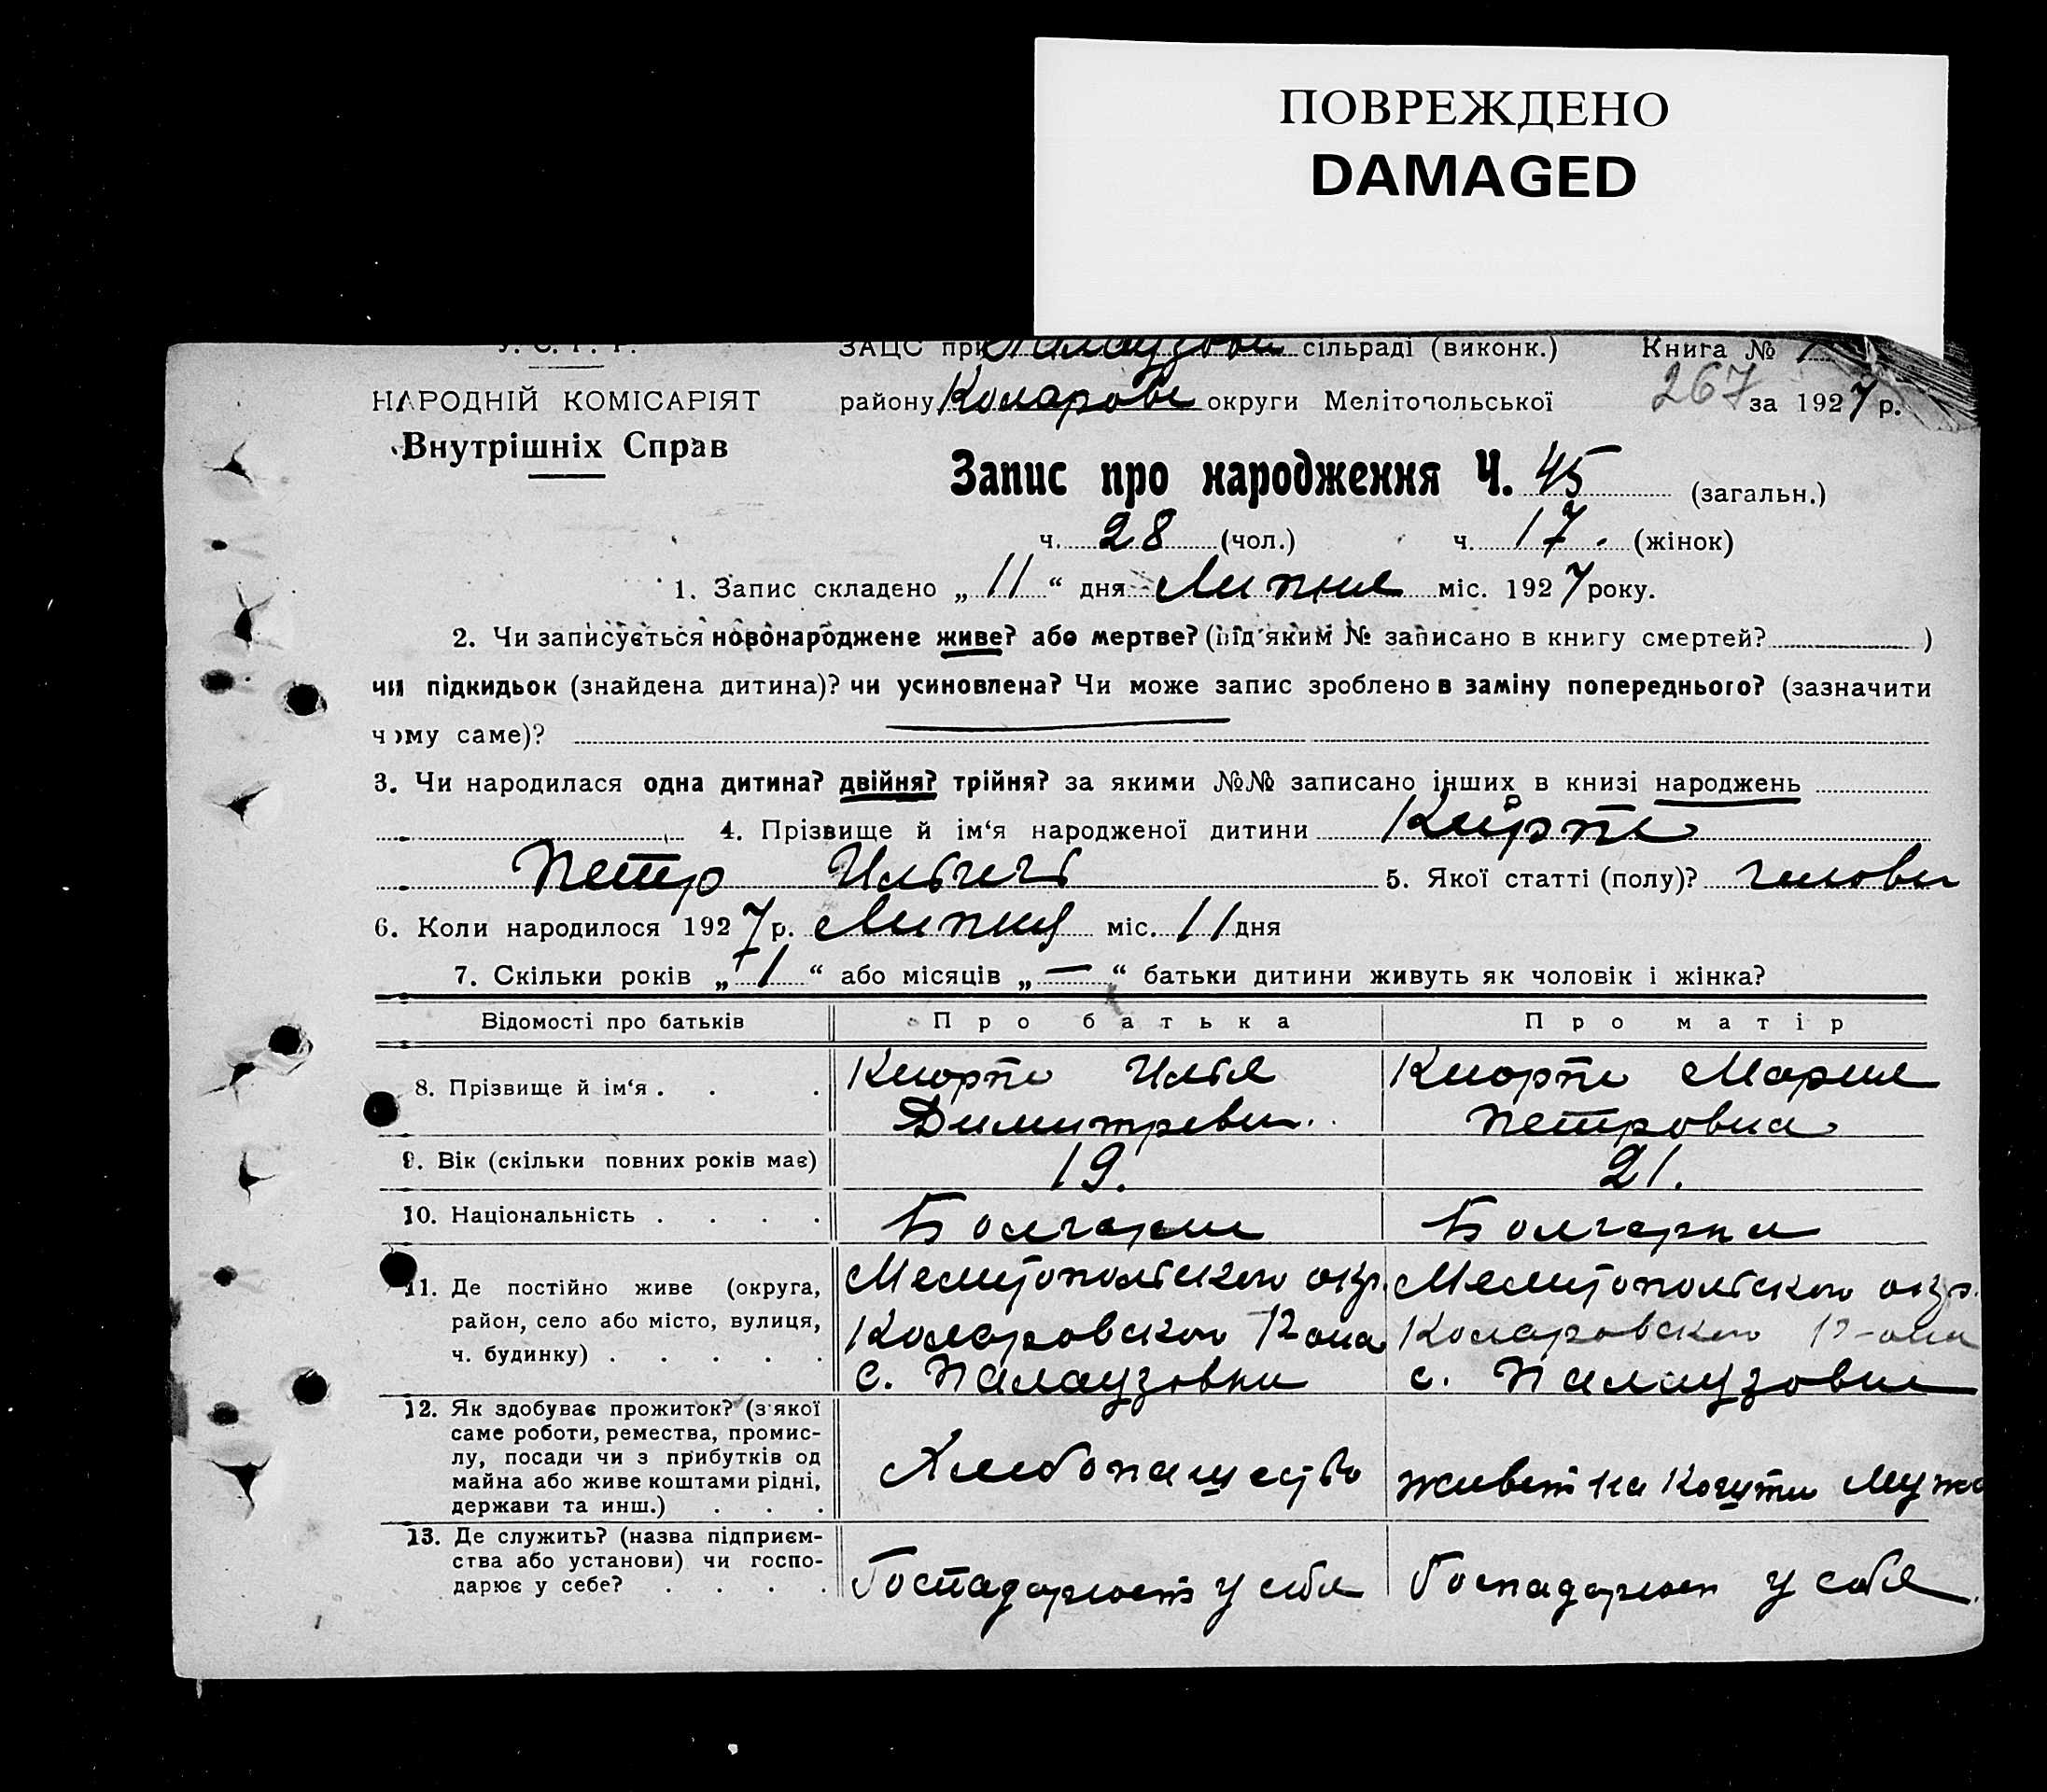 ПОВРЕЖДЕНО
DAMAGED
У. С. Р. Р.
ЗАЦС при Палаузови сільраді (виконк.) Книга №
НАРОДНІЙ КОМІСАРІЯТ
району Коларове округи Мелітопольської 267 за 1927 р.
Внутрішніх Справ
Запис про народження Ч. 45 (загальн.)
ч. 28 (чол.) ч. 17. (жінок)
1. Запис складено „11“ дня Липня міс. 1927 року.
2. Чи записується новонароджене живе? або мертве? (під яким № записано в книгу смертей? )
чи підкидьок (знайдена дитина)? чи усиновлена? Чи може запис зроблено в заміну попереднього? (зазначити
чому саме)?
3. Чи народилася одна дитина? двійня? трійня? за якими №№ записано інших в книзі народжень
4. Прізвище й ім‘я народженої дитини Кюрпе
Петро Ильич 5. Якої статті (полу)? чолови
6. Коли народилося 1927 р. Липня міс. 11 дня
7. Скільки років „1“ або місяців „—“ батьки дитини живуть як чоловік і жінка?
Відомості про батьків Про батька Про матір
8. Прізвище й ім‘я . . . Кюрпе Илья Кюрпе Мария
Димитреви.. Петровна
9. Вік (скільки повних років має) 19. 21.
10. Національність . . . . Болгари Болгарки
11. Де постійно живе (округа, Мелитопольского окр. Мелитопольского окр.
район, село або місто, вулиця, Коларовского Р-она Коларовского Р-она
ч. будинку) . . . . . с. Палаузовки с. Палаузовки
12. Як здобуває прожиток? (з якої
саме роботи, ремества, промис-
лу, посади чи з прибутків од Хлебопащество живет на кошти Мужа
майна або живе коштами рідні,
держави та инш.) . . .
13. Де служить? (назва підприєм-
ства або установи) чи госпо- Госпадарюет у себя Госпадарюет у себя.
дарює у себе? . . . .